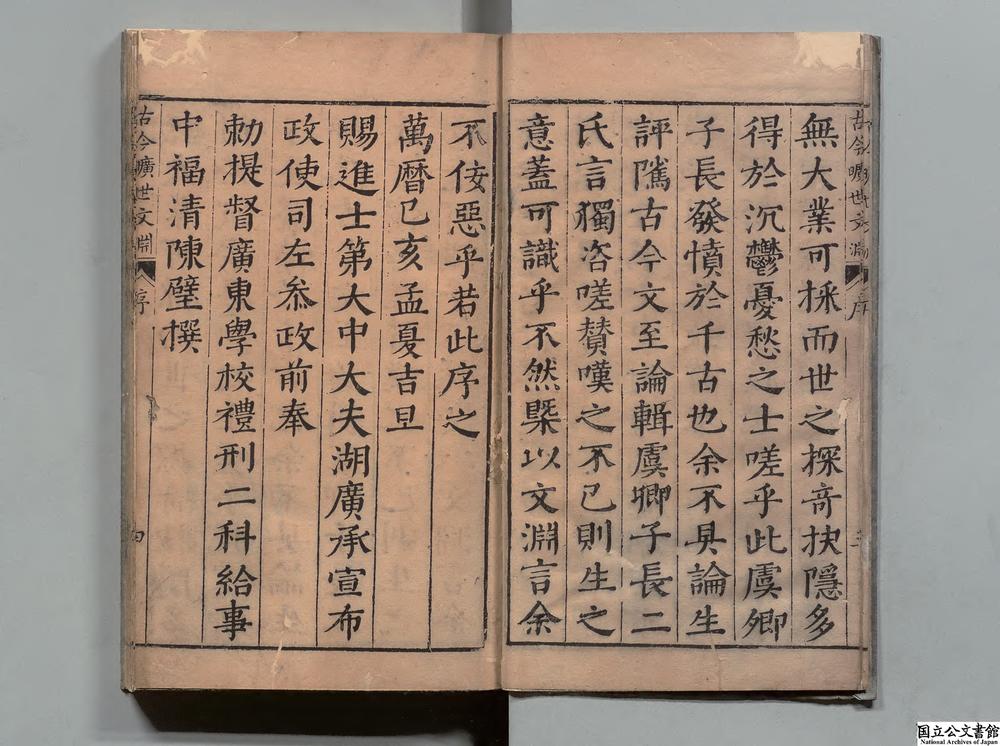 古今曠世文淵
序
三
無大業可採而世之探奇抉隱多
得於沉鬱憂愁之士嗟乎此虞卿
子長發憤於千古也余不具論生
評隲古今文至論輯虞卿子長二
氏言獨咨嗟賛嘆之不已則生之
意蓋可識乎不然槩以文淵言余
不佞惡乎若此序之
萬曆己亥孟夏吉旦
賜進士第大中大夫湖廣承宣布
政使司左叅政前奉
勑提督廣東學校禮刑二科給事
中福清陳璧撰
古今曠世文淵
序
四
国立公文書館
National Archives of Japan